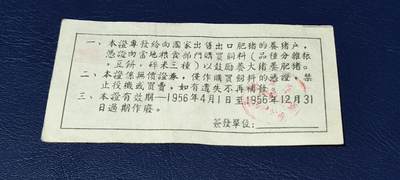 一、本證專發給向國家出售出口肥猪的養猪户，
憑證向當地粮食部門購買飼料（品種分雜粮
、豆餅、碎米三種）以鼓励養大猪養肥猪。
二、本證係無價證券，僅作購買飼料的憑證，禁
止投機或買賣，如有遺失不再補發。
三、本證有效期—1956年4月1日至1956年12月31
日過期作廢。
簽發單位：